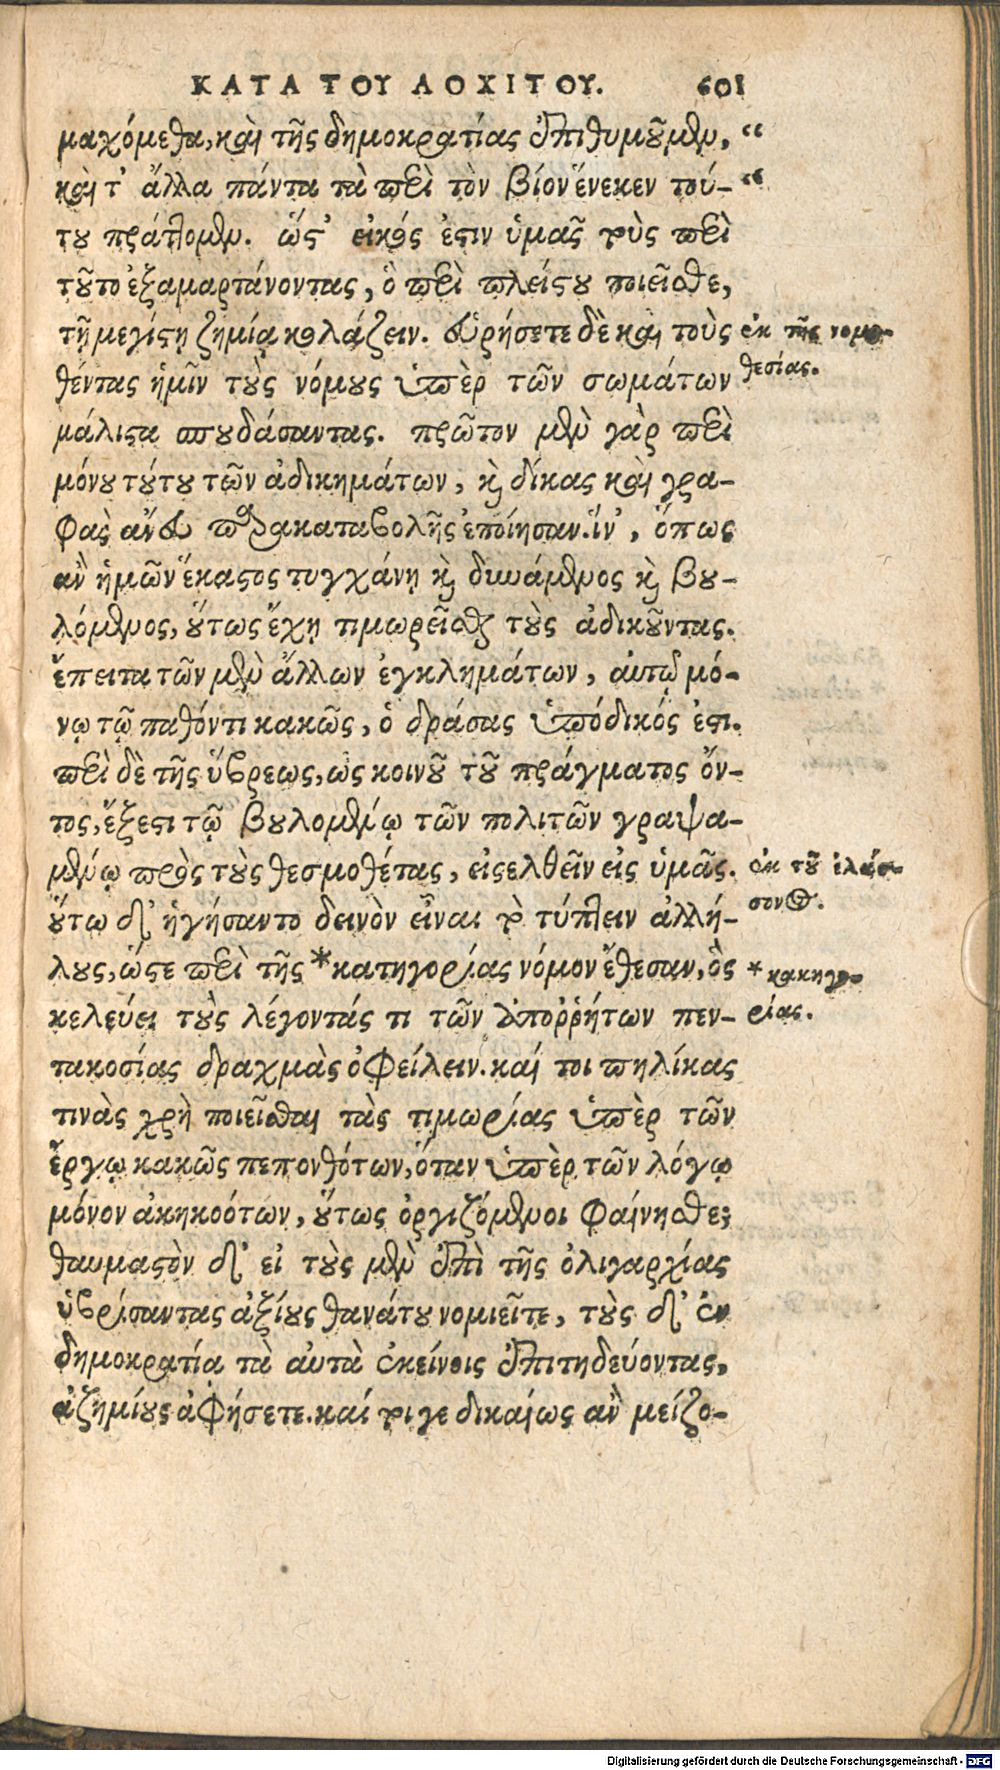 ΚΑΤΑ ΤΟΥ ΛΟΧΙΤΟΥ. 601
μαχόμεθα, καὶ τῆς δημοκρατίας ἐπιθυμοῦμεν, “
καὶ τ' ἄλλα πάντα τὰ περὶ τὸν βίον ἕνεκεν τού- “
του πράττομεν. ὥστ' εἰκός ἐστιν ὑμᾶς τοὺς περὶ
τοῦτο ἐξαμαρτάνοντας, ὃ περὶ πλείστου ποιεῖσθε,
τῇ μεγίστῃ ζημίᾳ κολάζειν. εὑρήσετε δὲ καὶ τοὺς
ἐκ τῆς νομο-
θεσίας.
θέντας ἡμῖν τοὺς νόμους ὑπὲρ τῶν σωμάτων
μάλιστα σπουδάσαντας. πρῶτον μὲν γὰρ περὶ
μόνου τούτου τῶν ἀδικημάτων, καὶ δίκας καὶ γρα-
φὰς ἄνευ παρακαταβολῆς ἐποίησαν. ἵν', ὅπως
ἂν ἡμῶν ἕκαστος τυγχάνῃ καὶ δυνάμενος καὶ βου-
λόμενος, οὕτως ἔχῃ τιμωρεῖσθαι τοὺς ἀδικοῦντας.
ἔπειτα τῶν μὲν ἄλλων ἐγκλημάτων, αὐτῷ μό-
νῳ τῷ παθόντι κακῶς, ὁ δράσας ὑπόδικός ἐστι.
περὶ δὲ τῆς ὕβρεως, ὡς κοινοῦ τοῦ πράγματος ὄν-
τος, ἔξεστι τῷ βουλομένῳ τῶν πολιτῶν γραψα-
μένῳ πρὸς τοὺς θεσμοθέτας, εἰσελθεῖν εἰς ὑμᾶς.
ἐκ τοῦ ἐλάσ-
σονος.
οὕτω δ' ἡγήσαντο δεινὸν εἶναι τὸ τύπτειν ἀλλή-
λους, ὥστε περὶ τῆς *κατηγορίας νόμον ἔθεσαν, ὃς
* κακηγο-
ρίας.
κελεύει τοὺς λέγοντάς τι τῶν ἀποῤῥήτων πεν-
τακοσίας δραχμὰς ὀφείλειν. καί τοι πηλίκας
τινὰς χρὴ ποιεῖσθαι τὰς τιμωρίας ὑπὲρ τῶν
ἔργῳ κακῶς πεπονθότων, ὅταν ὑπὲρ τῶν λόγῳ
μόνον ἀκηκοότων, οὕτως ὀργιζόμενοι φαίνησθε;
θαυμαστὸν δ' εἰ τοὺς μὲν ἐπὶ τῆς ὀλιγαρχίας
ὑβρίσαντας ἀξίους θανάτου νομιεῖτε, τοὺς δ' ἐν
δημοκρατίᾳ τὰ αὐτὰ ἐκείνοις ἐπιτηδεύοντας,
ἀζημίους ἀφήσετε. καί τοι γε δικαίως ἂν μείζο-
Digitalisierung gefördert durch die Deutsche Forschungsgemeinschaft - DFG